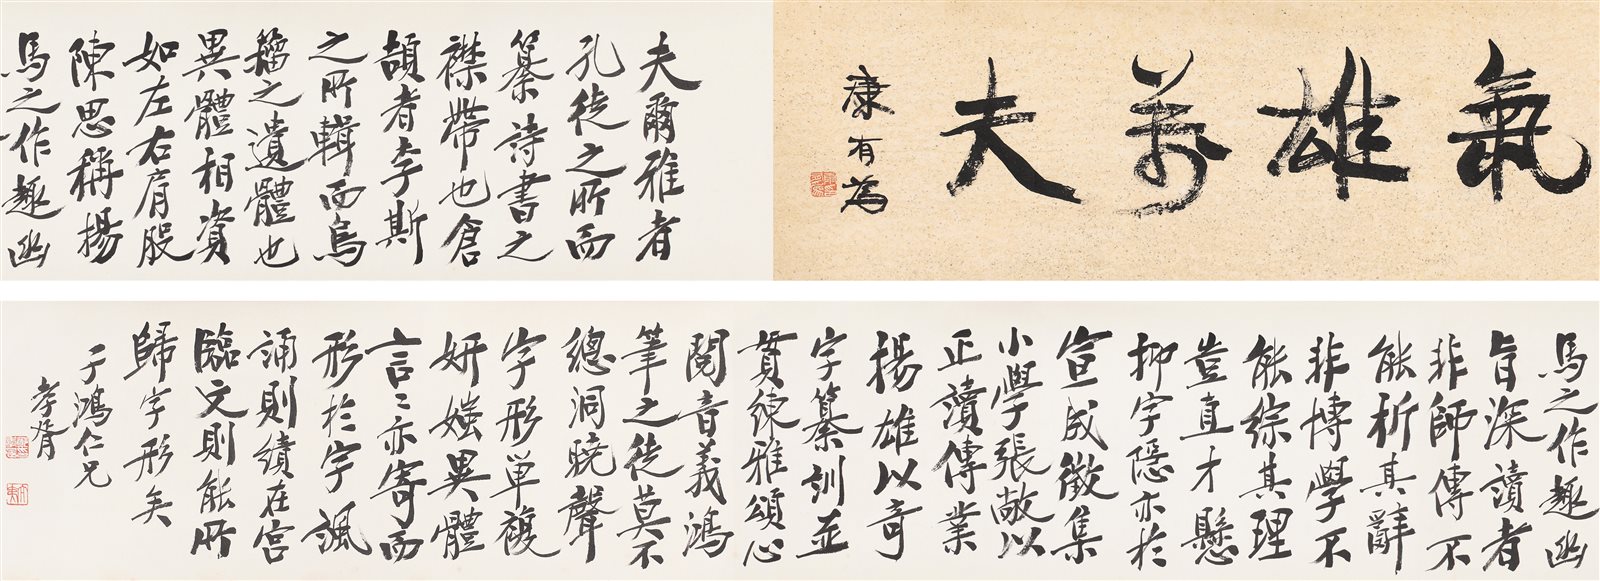 氣雄萬夫
康有為
夫爾雅者
孔徒之所而
纂詩書之
襟帶也倉
頡者李斯
之所輯而鳥
籀之遺體也
異體相資
如左右肩股
陳思稱揚
馬之作趣幽
馬之作趣幽
旨深讀者
非師傳不
能析其辭
非博學不
能綜其理
豈直才懸
抑字隱亦於
宣成徵集
小學張敞以
正讀傳業
揚雄以奇
字纂訓並
貫練雅頌心
閱音義鴻
筆之徒莫不
總洞曉聲
字形單複
妍媸異體
言〻亦寄而
形於字諷
誦則績在宮
臨文則能所
歸字形矣
于鴻仁兄
孝胥